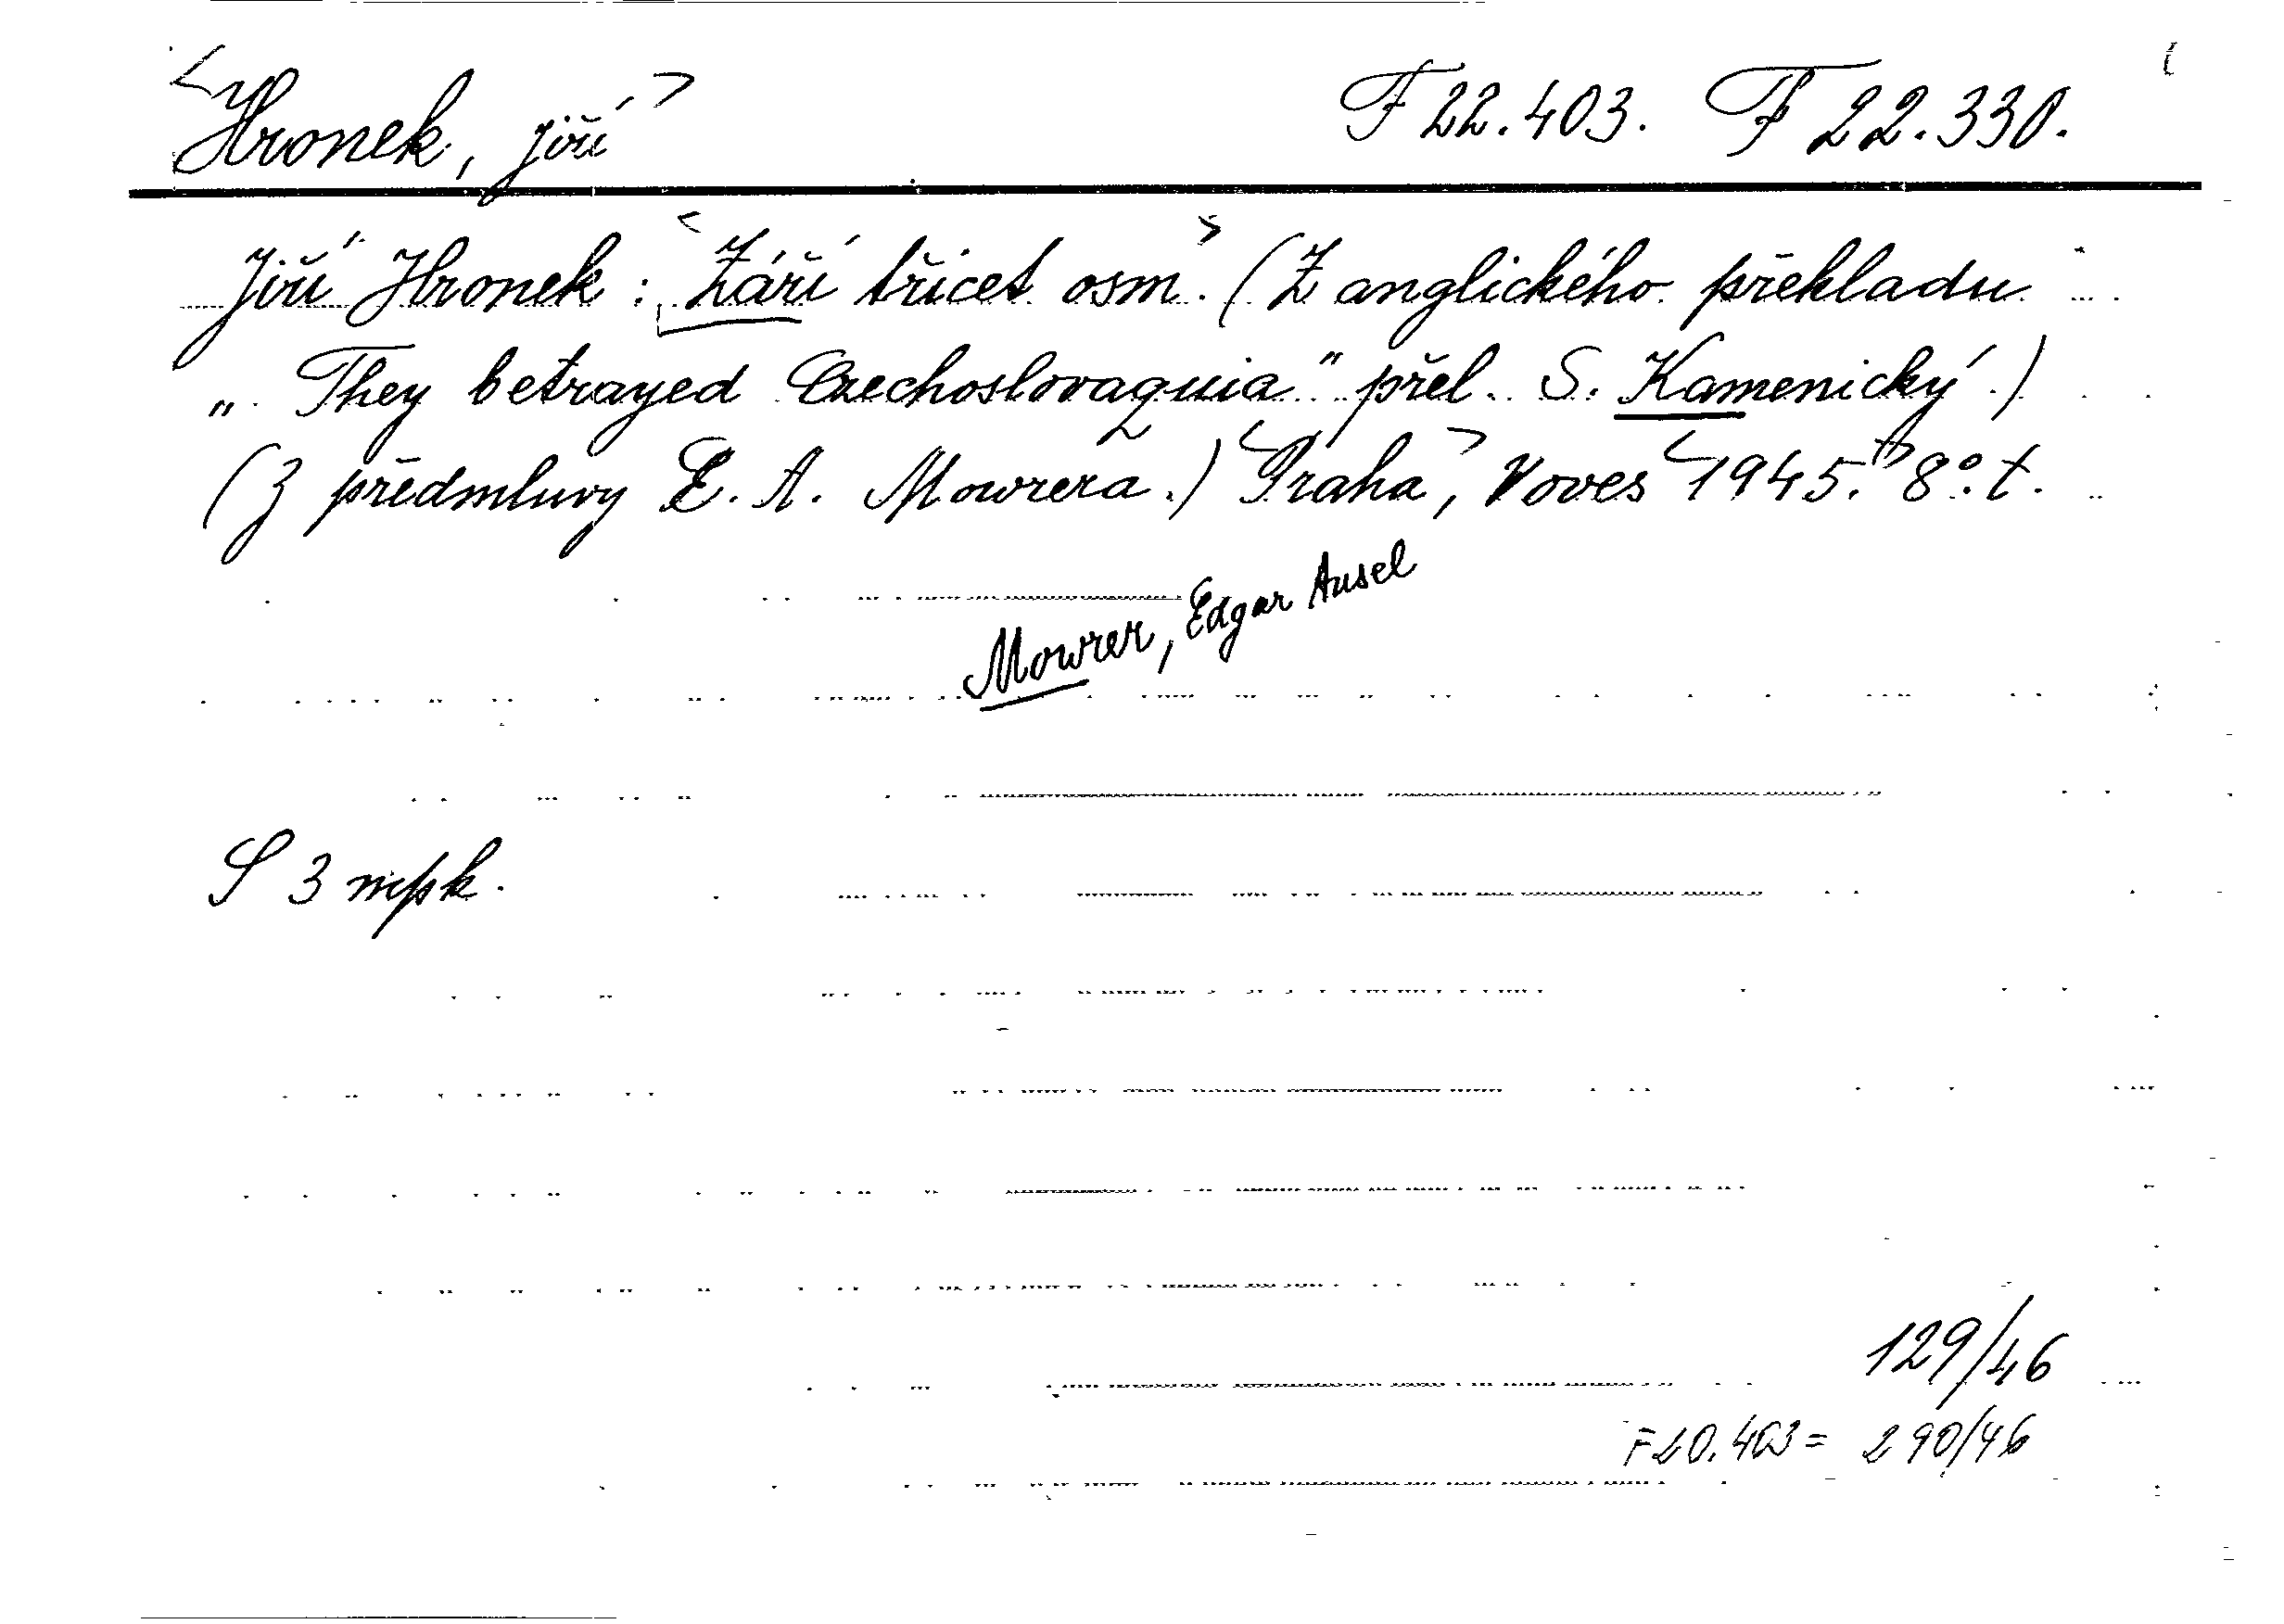 <Hronek, Jiří> F 22.403. F 22.330.
Jiří Hronek: <Září třicet osm>. (Z anglického překladu
„They betrayed Czechoslovaquia" přel. S. Kamenický.)
(Z předmluvy E. A. Mowrera.) <Praha>, Voves <1945.> 8°. t.
Mowrer, Edgar Ansel
S 3 mpk.
129/46
F20.403 = 290/46